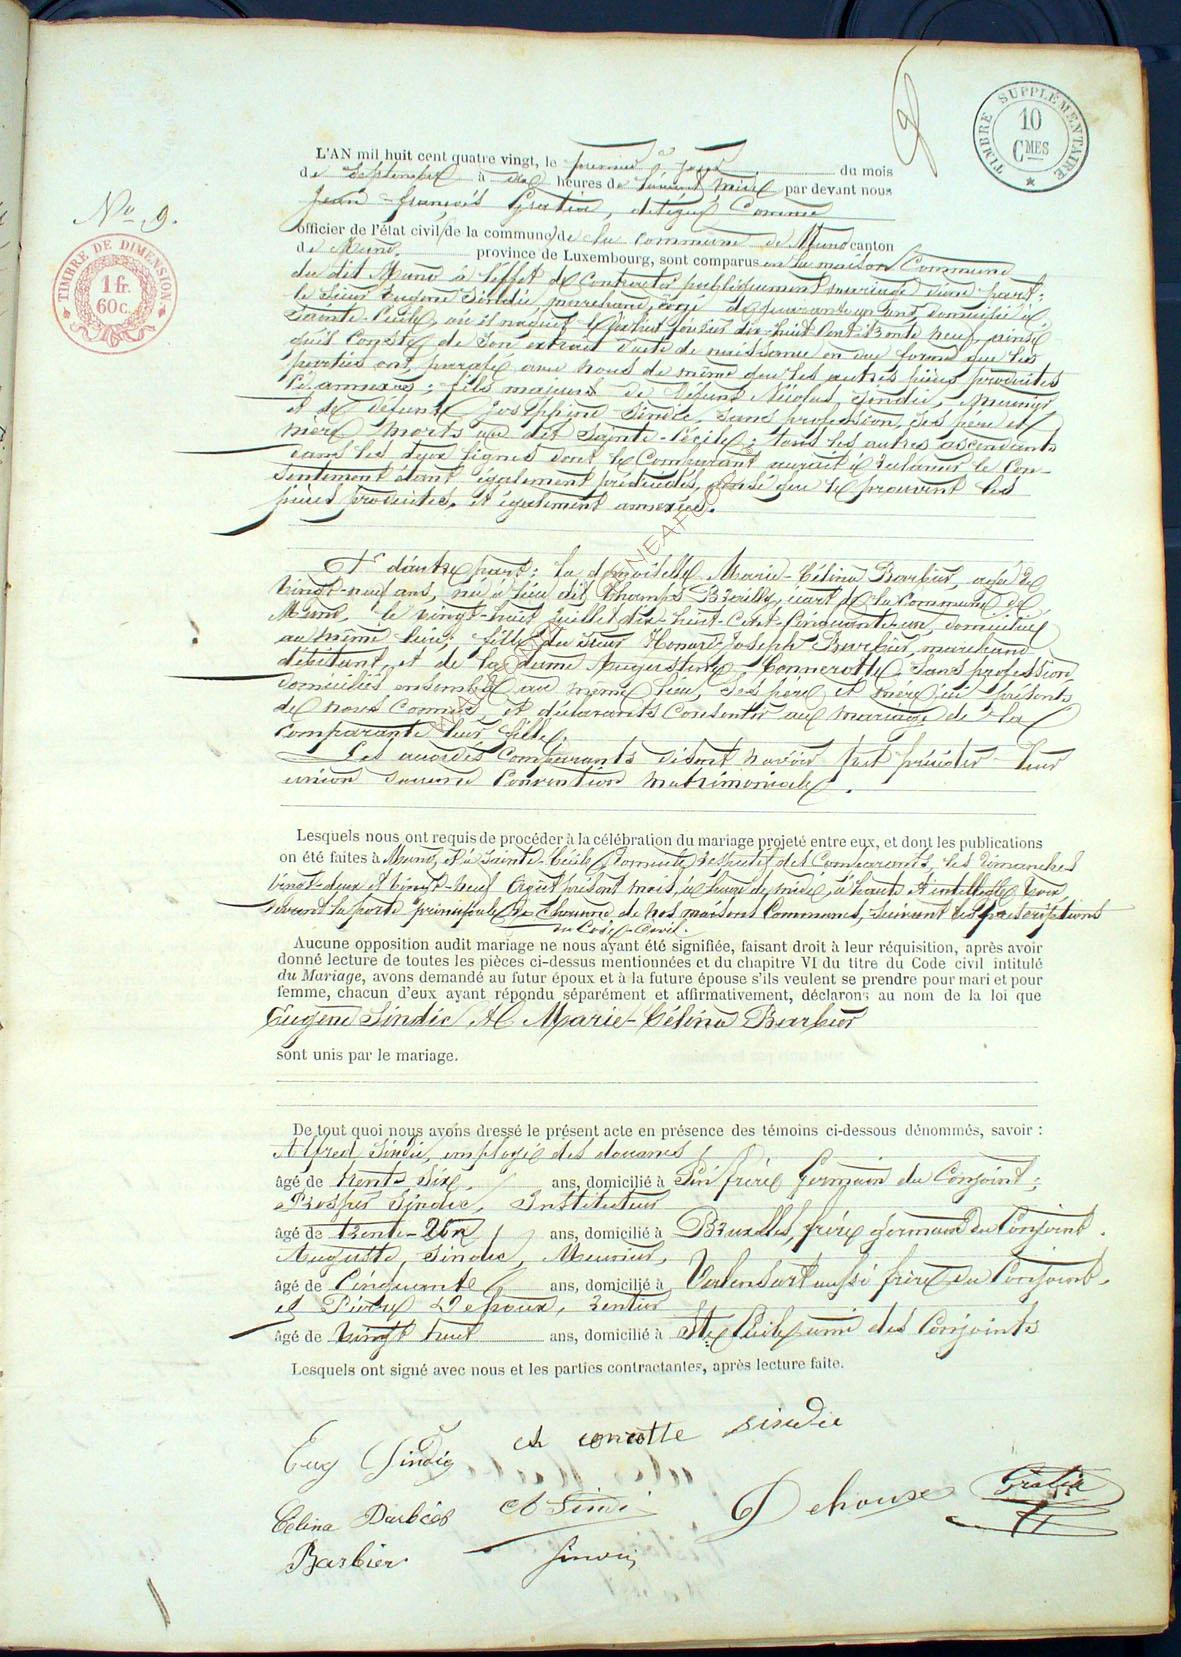 TIMBRE SUPPLÉMENTAIRE
10
CMES
No 9.
TIMBRE DE DIMENSION
1 fr.
60 c.
L'AN mil huit cent quatre vingt, le premier jour du mois
de Septembre à dix heures de par devant nous
Jean-françois Gratia, délégué Comme
officier de l'état civil de la commune de la commune de Muno canton
de Muno, province de Luxembourg, sont comparus en la maison Commune
du dit Muno à l'effet de contracter publiquement mariage d'une part:
le Sieur Eugène Sindic, marchand, âgé de quarante un ans, domicilié à
Sainte-Cécile, où il naquit le dix-huit Cent trente neuf, ainsi
qu'il Conste de son extrait d'acte de naissance en due forme que les
parties ont paraphé avec nous de même que les autres pièces produites
ci-annexées; fils majeur de défunt Nicolas Sindic, Meunier
et de défunte Josephine Sindic, sans profession, ses père et
mère morts au dit Sainte-Cécile; tous les autres ascendants
dans les deux lignes dont le Comparant aurait à réclamer le Con-
sentement étant également prédécédés, ainsi que le prouvent les
pièces produites, et également annexées.
Et d'autre part: la demoiselle Marie-Célina Barbier, agée de
Vingt-neuf ans, née à lieu dit Champs Brêilly, écart de la Commune de
Muno, le vingt-huit juillet dix-huit-Cent-Cinquante-un, domiciliée
au même lieu; fille du sieur Honoré Joseph Barbier, marchand
débitant, et de la dame Augustine Connerotte, sans profession,
domiciliés ensemble au même lieu, ses père et mère ici présents
de nous Connus, et déclarants Consentir au mariage de la
Comparante leur fille.
Les accordés Comparants disent n'avoir fait précéder leur
union d'aucune Convention matrimoniale.
Lesquels nous ont requis de procéder à la célébration du mariage projeté entre eux, et dont les publications
on été faites à Muno, et à Sainte-Cécile, domicile respectif des Comparants, les dimanches
vingt-deux et vingt-neuf Août présent mois, à heure de midi, à haute et intelligible voix
devant la porte principale de Chacune de nos maisons Communes, suivant les prescriptions
du Code-Civil.
Aucune opposition audit mariage ne nous ayant été signifiée, faisant droit à leur réquisition, après avoir
donné lecture de toutes les pièces ci-dessus mentionnées et du chapitre VI du titre du Code civil intitulé
du Mariage, avons demandé au futur époux et à la future épouse s'ils veulent se prendre pour mari et pour
femme, chacun d'eux ayant répondu séparément et affirmativement, déclarons au nom de la loi que
Eugène Sindic et Marie-Célina Barbier
sont unis par le mariage.
De tout quoi nous avons dressé le présent acte en présence des témoins ci-dessous dénommés, savoir :
Alfred Sindic, employé des douanes
âgé de trente six ans, domicilié à frère Germain du Conjoint;
Prosper Sindic, Instituteur
âgé de trente-un ans, domicilié à Bruxelles, frère germain du Conjoint.
Auguste Sindic, Meunier,
âgé de Cinquante ans, domicilié à Valensart aussi frère du Conjoint,
et rentier
âgé de Vingt huit ans, domicilié à Ste Cécile, ami des Conjoints
Lesquels ont signé avec nous et les parties contractantes, après lecture faite.
Eug Sindic
A conrotte
Sindic
Célina Barbier
A Sindic
Dehoux
Gratia
Barbier
Sindic